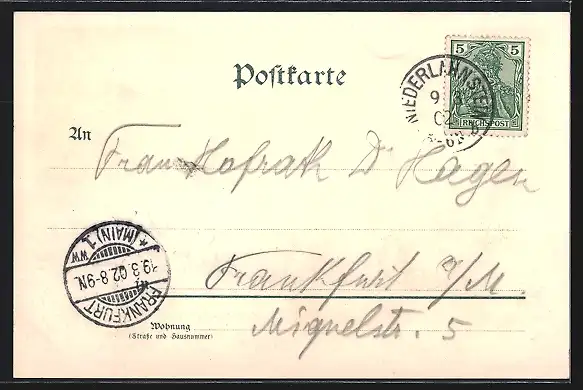 Postkarte
5 5
REICHSPOST
NIEDERLAHNSTEIN
9
02
An
Frau Hofrath Dr Hagen
Frankfurt a/M.
Miquelstr. 5
Wohnung
(Straße und Hausnummer)
FRANKFURT
* (MAIN) 1.
WW
19.3.02.8-9N.